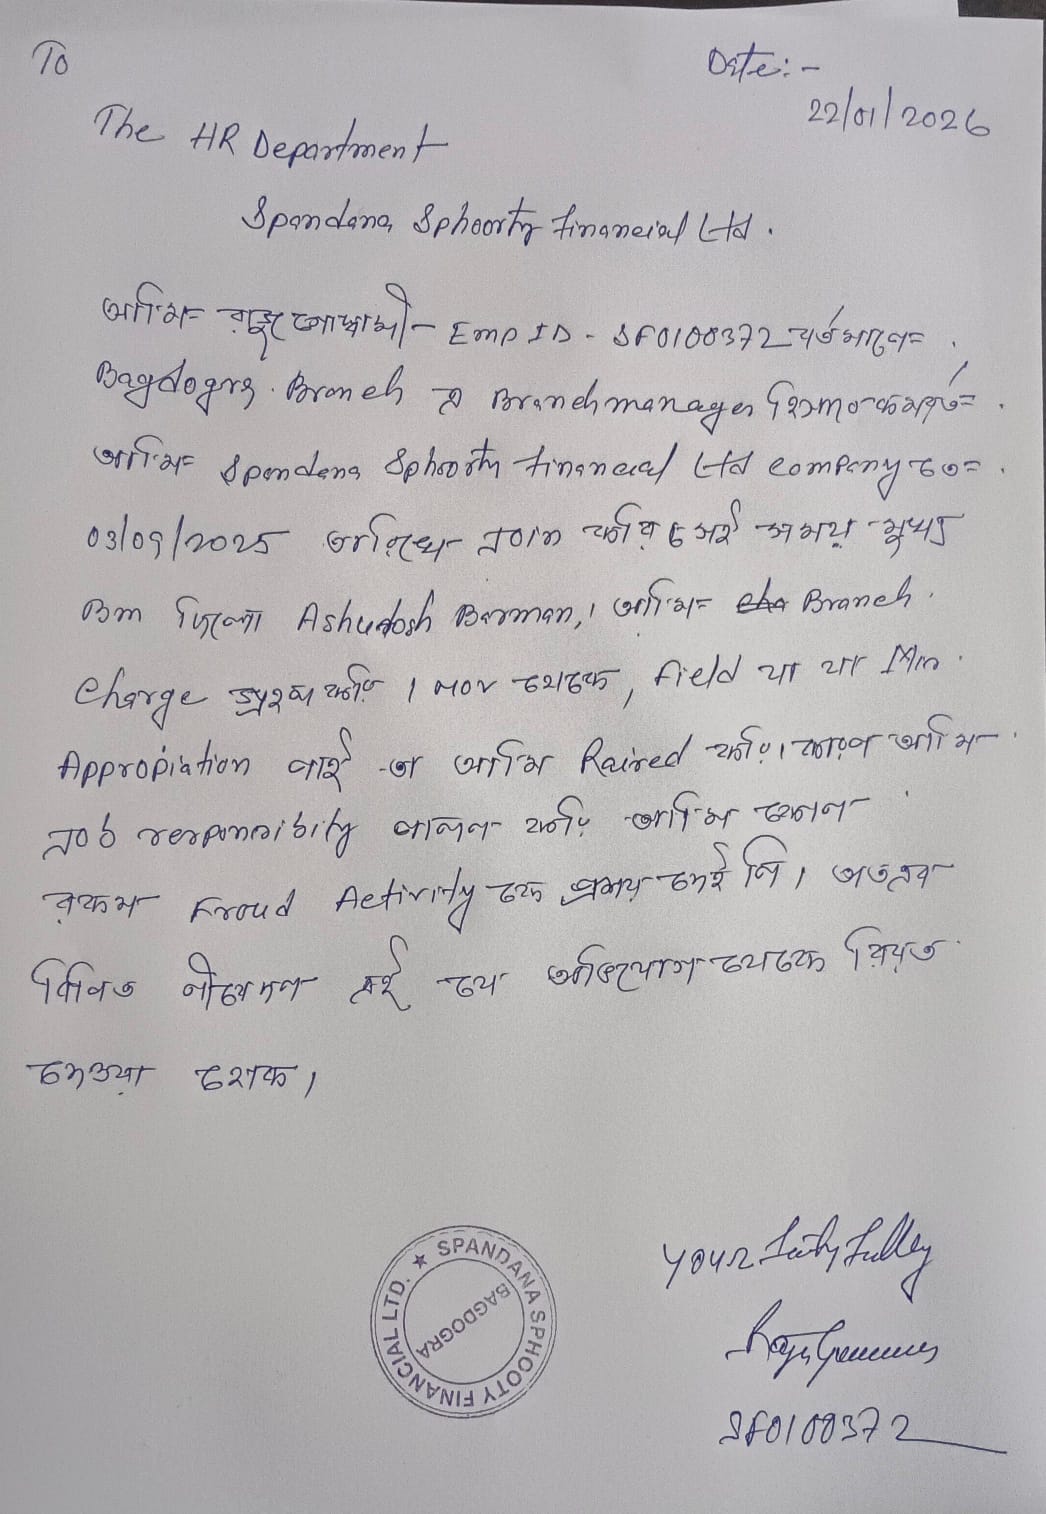 To
Date:-
22/01/2026
The HR Department
Spandana Sphoorty Financial Ltd.
আমি রাজু গোস্বামী - Emp ID - SF0100372 বর্তমানে
Bagdogra Branch এ Branch manager হিসাবে কর্মরত।
আমি Spandana Sphoorty Financial Ltd company তে
03/09/2025 তারিখে জয়েন করি সেই সময়
Bm ছিলো Ashutosh Barman, আমি Branch
charge গ্রহণ করি। Nov থেকে, field যা যা Mis
Appropiation পাই তা আমি Raired করি। কারণ আমি
Job responsibity পালন করি আমি কোন
রকম Froud Activity কে প্রশ্রয় দেই নি। অতএব
বিনিত নীবেদন এই যে অভিযোগ থেকে
দেওয়া হোক।
SPANDANA SPHOOTY FINANCIAL LTD. ★
BAGDOGRA
your faithfulley
SF0100372